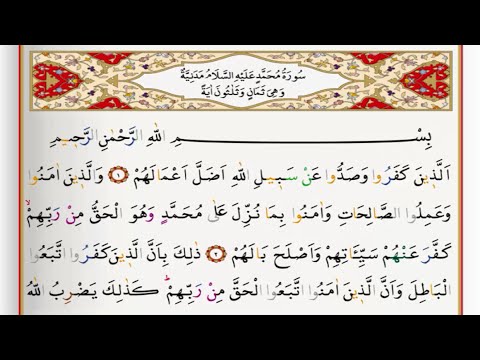 سُورَةُ مُحَمَّدٍ عَلَيْهِ السَّلَامُ مَدَنِيَّةٌ
وَهِيَ ثَمَانٍ وَثَلٰثُونَ اٰيَةً
بِسْمِ اللّٰهِ الرَّحْمٰنِ الرَّحٖيمِ
اَلَّذٖينَ كَفَرُوا وَصَدُّوا عَنْ سَبٖيلِ اللّٰهِ اَضَلَّ اَعْمَالَهُمْ ﴿١﴾ وَالَّذٖينَ اٰمَنُوا
وَعَمِلُوا الصَّالِحَاتِ وَاٰمَنُوا بِمَا نُزِّلَ عَلٰى مُحَمَّدٍ وَهُوَ الْحَقُّ مِنْ رَبِّهِمْۙ
كَفَّرَ عَنْهُمْ سَيِّـَٔاتِهِمْ وَاَصْلَحَ بَالَهُمْ ﴿٢﴾ ذٰلِكَ بِاَنَّ الَّذٖينَ كَفَرُوا اتَّبَعُوا
الْبَاطِلَ وَاَنَّ الَّذٖينَ اٰمَنُوا اتَّبَعُوا الْحَقَّ مِنْ رَبِّهِمْؕ كَذٰلِكَ يَضْرِبُ اللّٰهُ